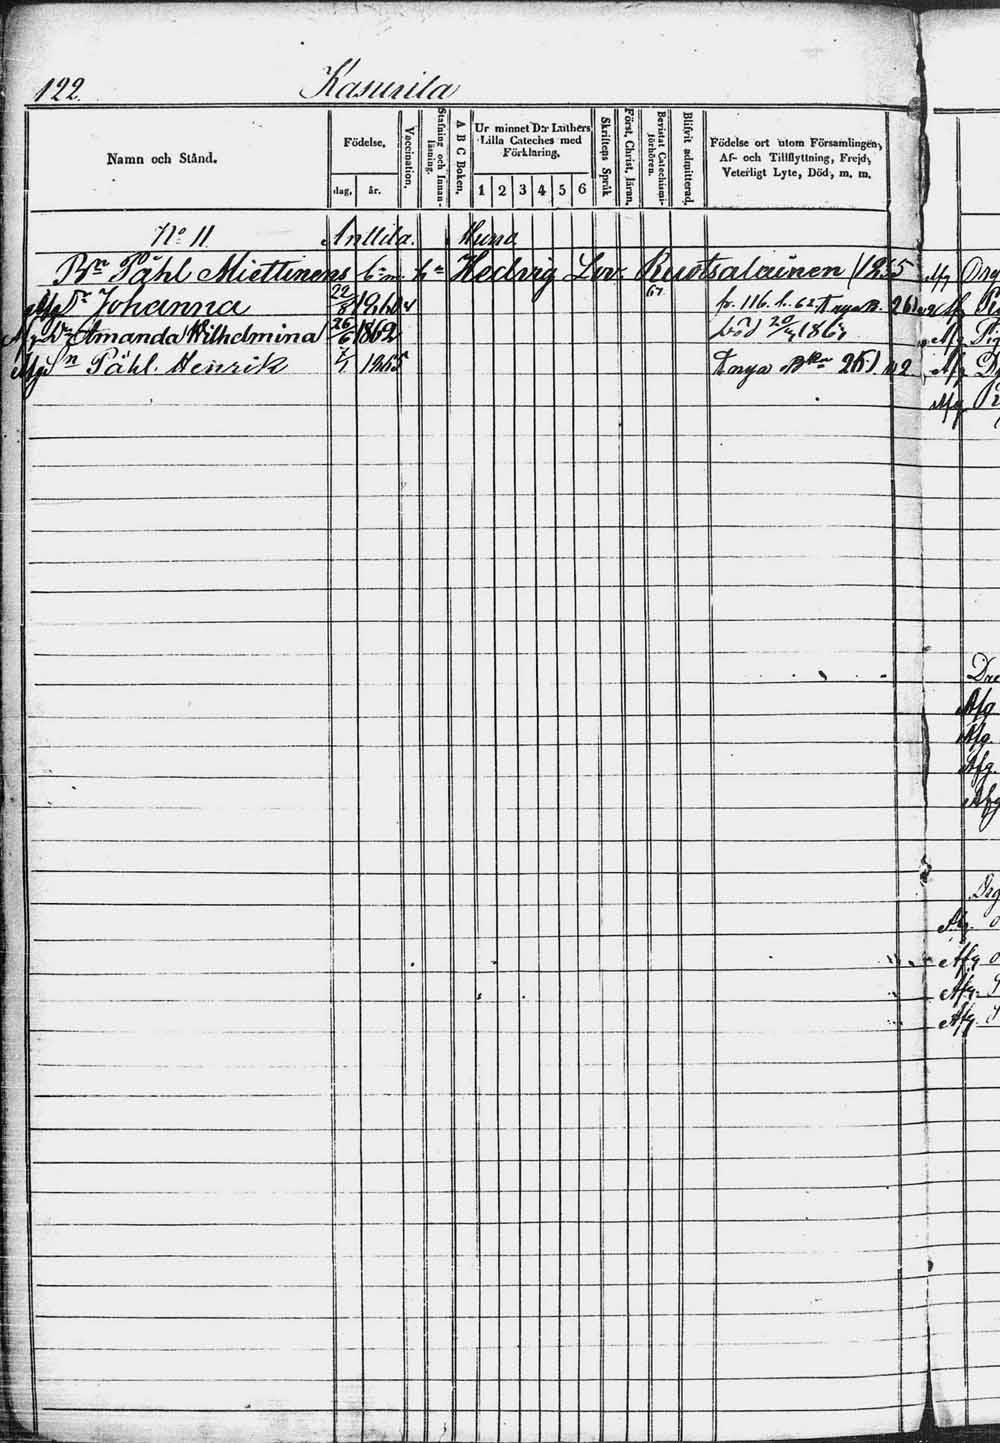 122. Kasurila
Namn och Stånd.
Födelse.
dag, år.
Vaccination.
Stafning och Innanläsning.
A B C Boken.
Ur minnet D:r Luthers Lilla Cateches med Förklaring.
1 2 3 4 5 6
Skriftens Språk
Först. Christ. läran.
Bevistat Catechismiförhören.
Blifvit admitterad.
Födelse ort utom Församlingen, Af- och Tillflyttning, Frejd, Veterligt Lyte, Död, m. m.
No 11 Anttila.
Bn Påhl Miettinens Hedvig Lov. Ruotsalainen
Dr Johanna 22/8 1860 v 67 fr. 116. h. 62.
Dr Amanda Wilhelmina 26/6 1862 död 20
Sn Påhl Henrik 7/1 1865 nya Bkn 261.
Afg
Afg
Afg
Afg.
Afg.
Afg
Afg
Afg.
Afg.